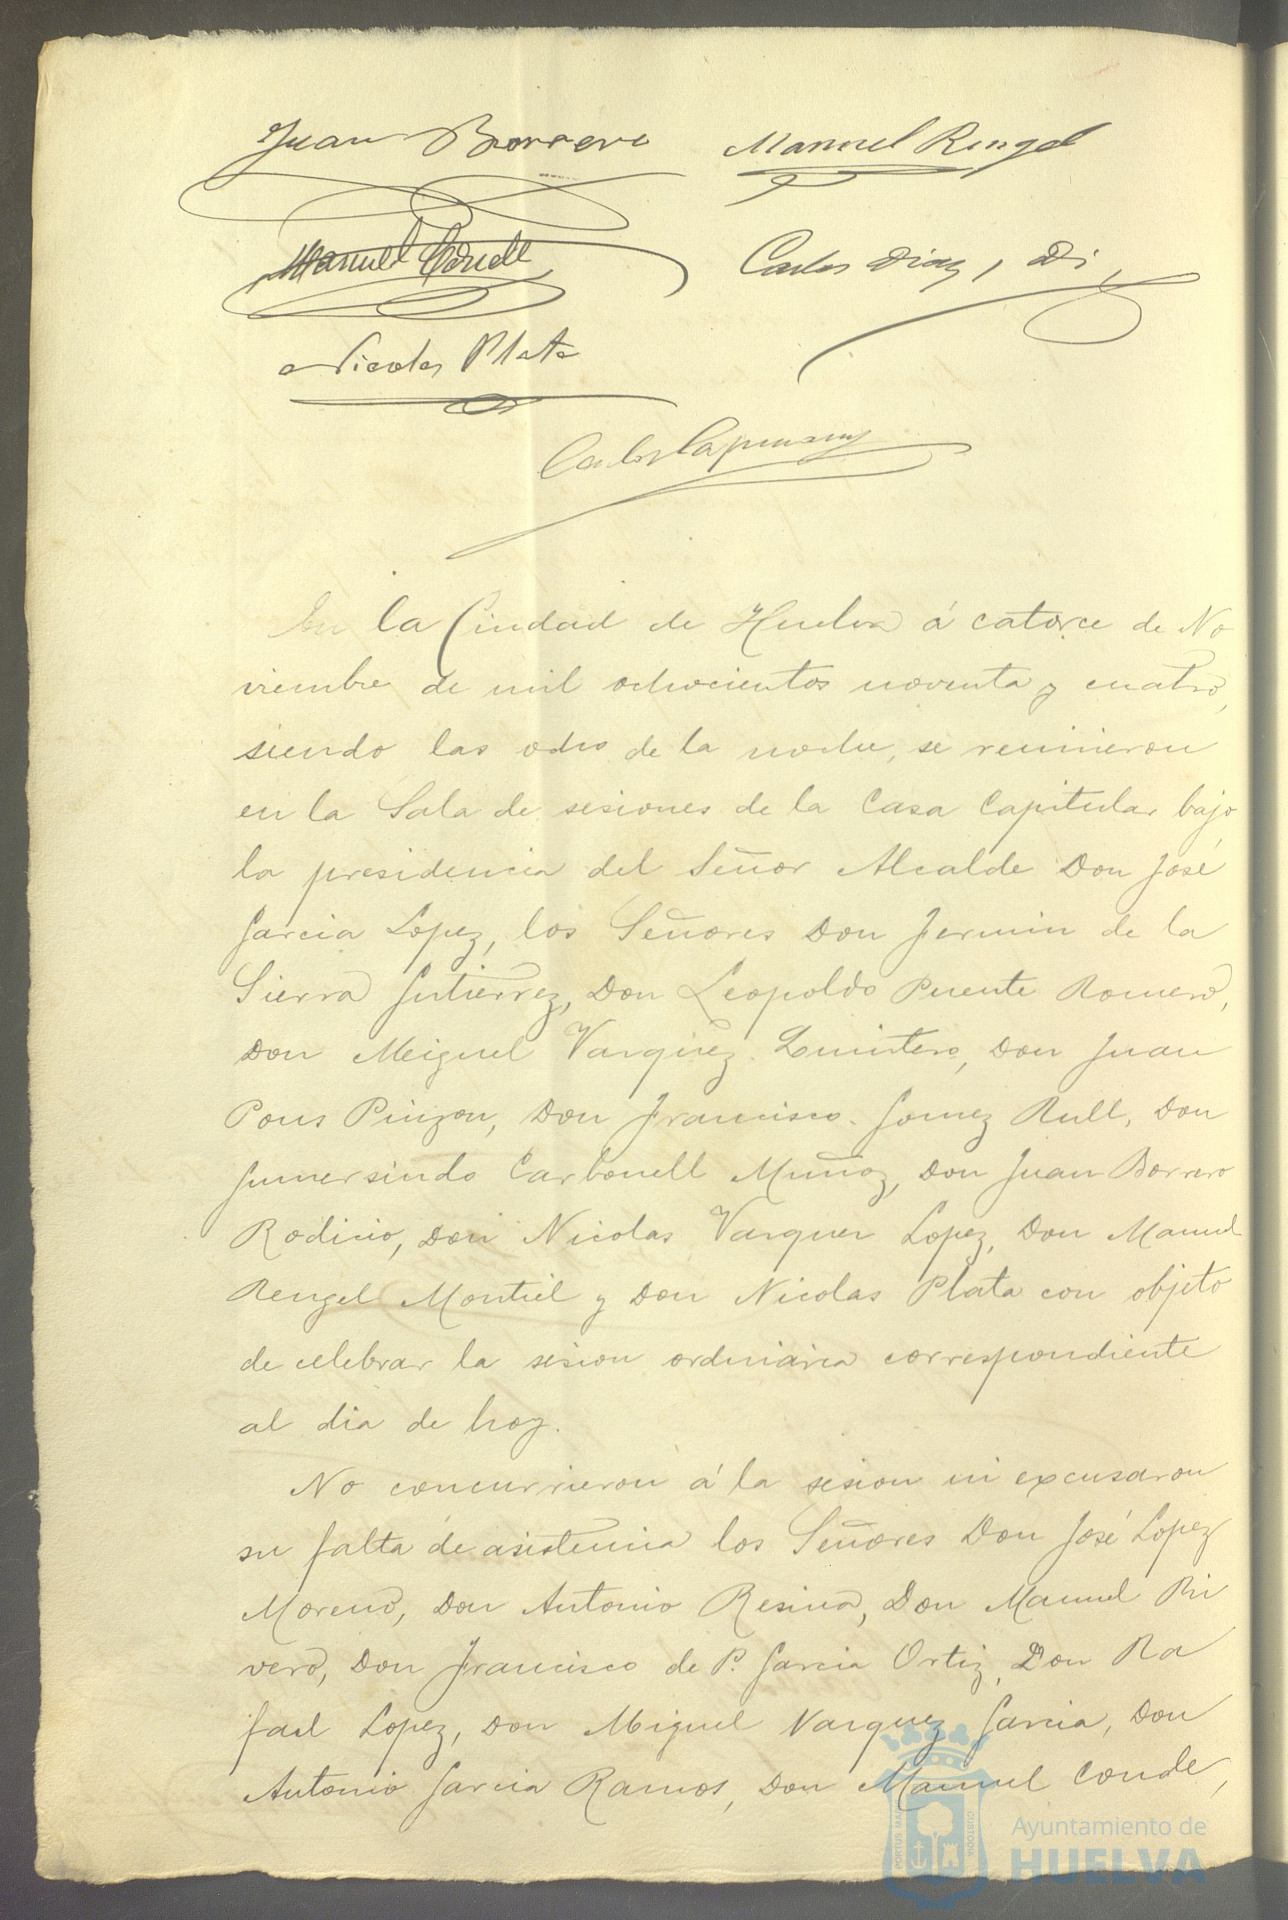 Juan Borrero Manuel Rengel
Manuel Conde Carlos Diaz, Di
Nicolas Plata
Carlos
En la Ciudad de Huelva á catorce de No
viembre de mil ochocientos noventa y cuatro,
siendo las ocho de la noche, se reunieron
en la Sala de sesiones de la Casa Capitular bajo
la presidencia del Señor Alcalde Don José
Garcia Lopez, los Señores Don Fermin de la
Sierra Gutierrez, Don Leopoldo Puente Romero,
Don Miguel Vazquez Quintero, Don Juan
Pons Pinzon, Don Francisco Gomez Rull, Don
Gumersindo Carbonell Muñoz, Don Juan Borrero
Rodicio, Don Nicolas Vazquez Lopez, Don Manuel
Rengel Montiel y Don Nicolas Plata con objeto
de celebrar la sesion ordinaria correspondiente
al dia de hoy.
No concurrieron á la sesion ni excusaron
su falta de asistencia los Señores Don José Lopez
Moreno, Don Antonio Resina, Don Manuel Ri
vero, Don Francisco de P. Garcia Ortiz, Don Ra
fael Lopez, Don Miguel Vazquez Garcia, Don
Antonio Garcia Ramos, Don Manuel Conde,
PORTUS MARIS CUSTODIA
Ayuntamiento de
HUELVA